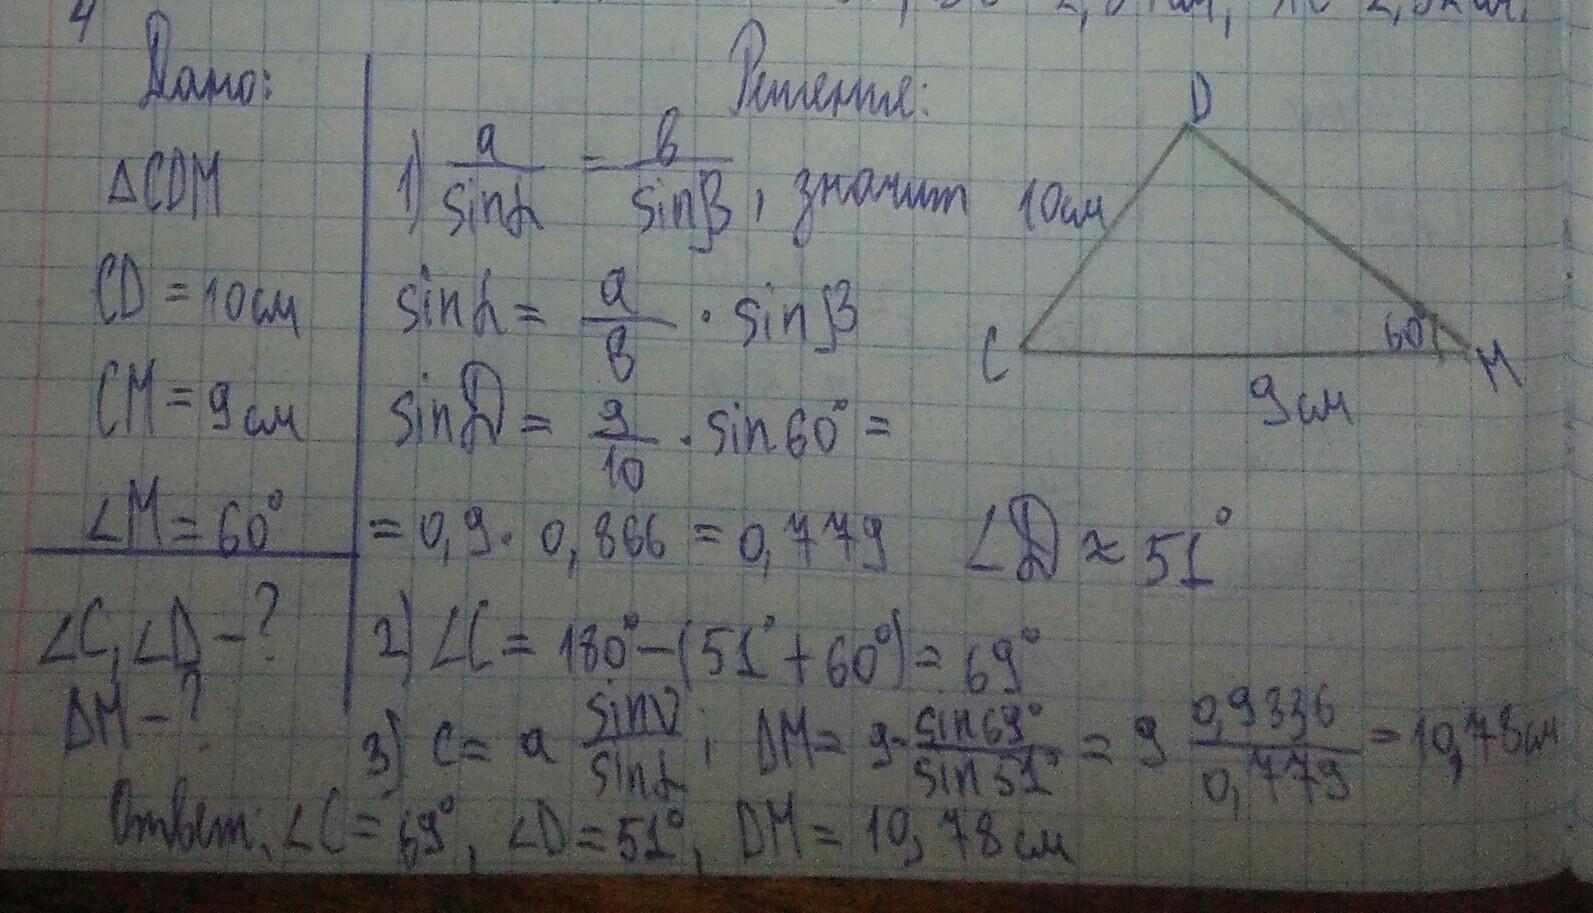 4
Дано:
ΔCDM
CD = 10 см
CM = 9 см
∠M = 60°
∠C, ∠D - ?
DM - ?
Решение:
1) a/sinα = b/sinβ, значит
sinα = a/b · sinβ
sinD = 9/10 · sin60° =
= 0,9 · 0,866 = 0,779 ∠D ≈ 51°
2) ∠C = 180° - (51° + 60°) = 69°
3) c = a sinγ/sinα, DM = 9 · sin69°/sin51° = 9 0,9336/0,779 = 10,78 см
Ответ: ∠C = 69°, ∠D = 51°, DM = 10,78 см
D
10 см
C
60°
M
9 см